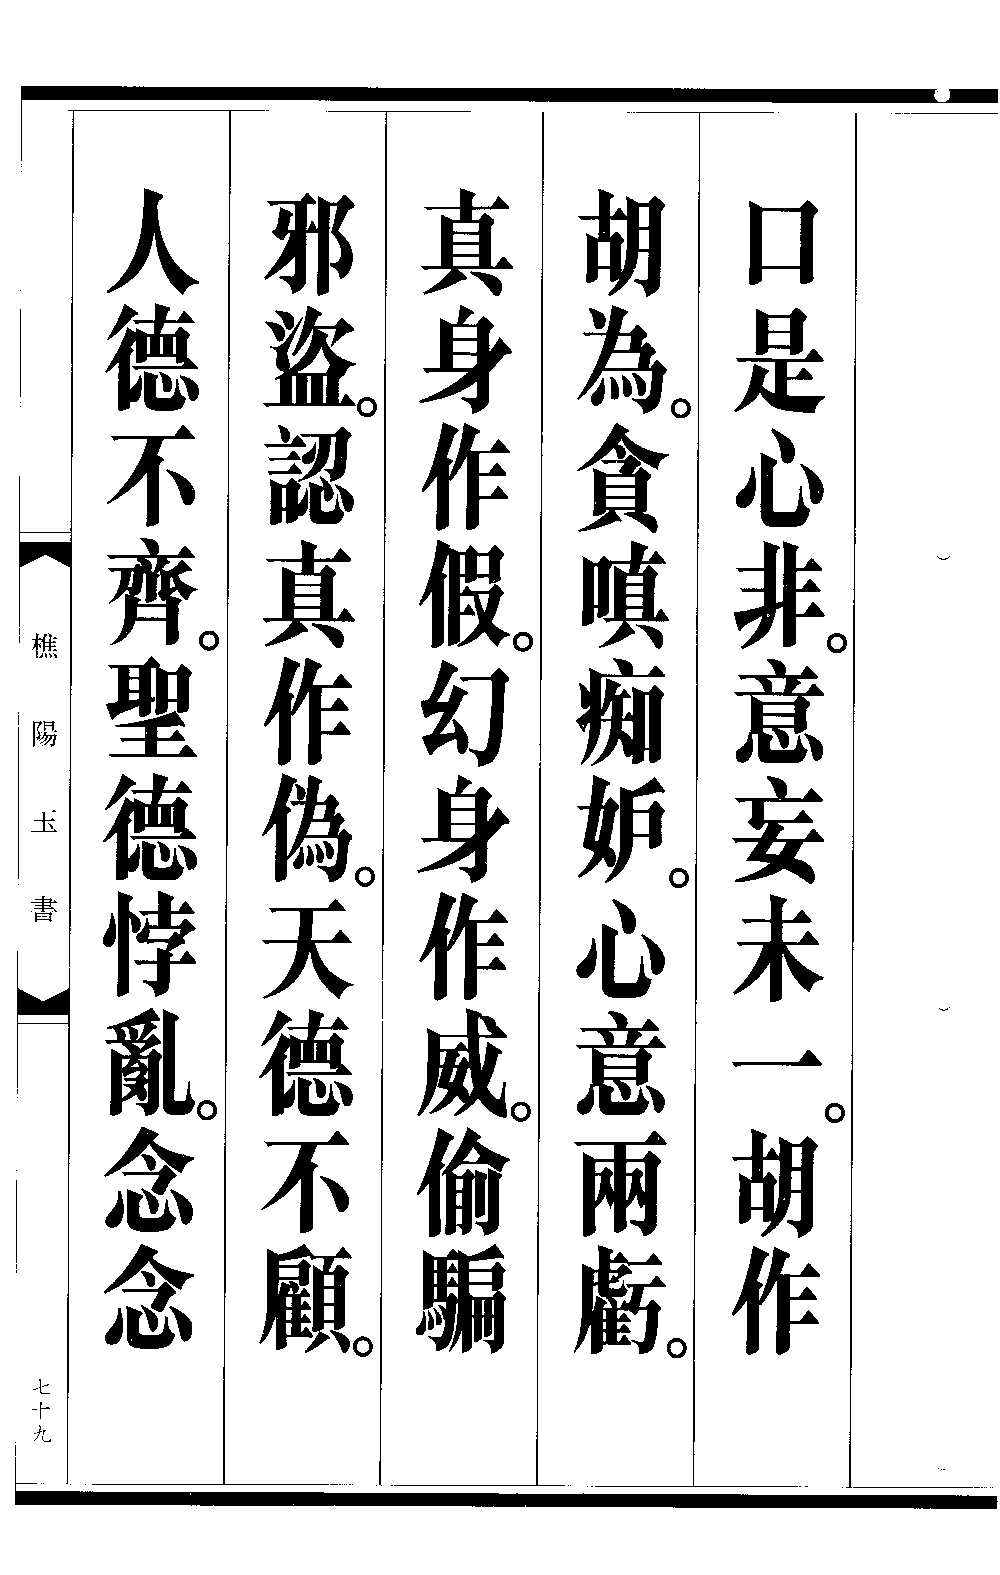 口是心非。意妄未一。胡作
胡為。貪嗔痴妒。心意兩虧。
真身作假。幻身作威。偷騙
邪盜。認真作偽。天德不顧。
人德不齊。聖德悖亂。念念
樵陽玉書
七十九